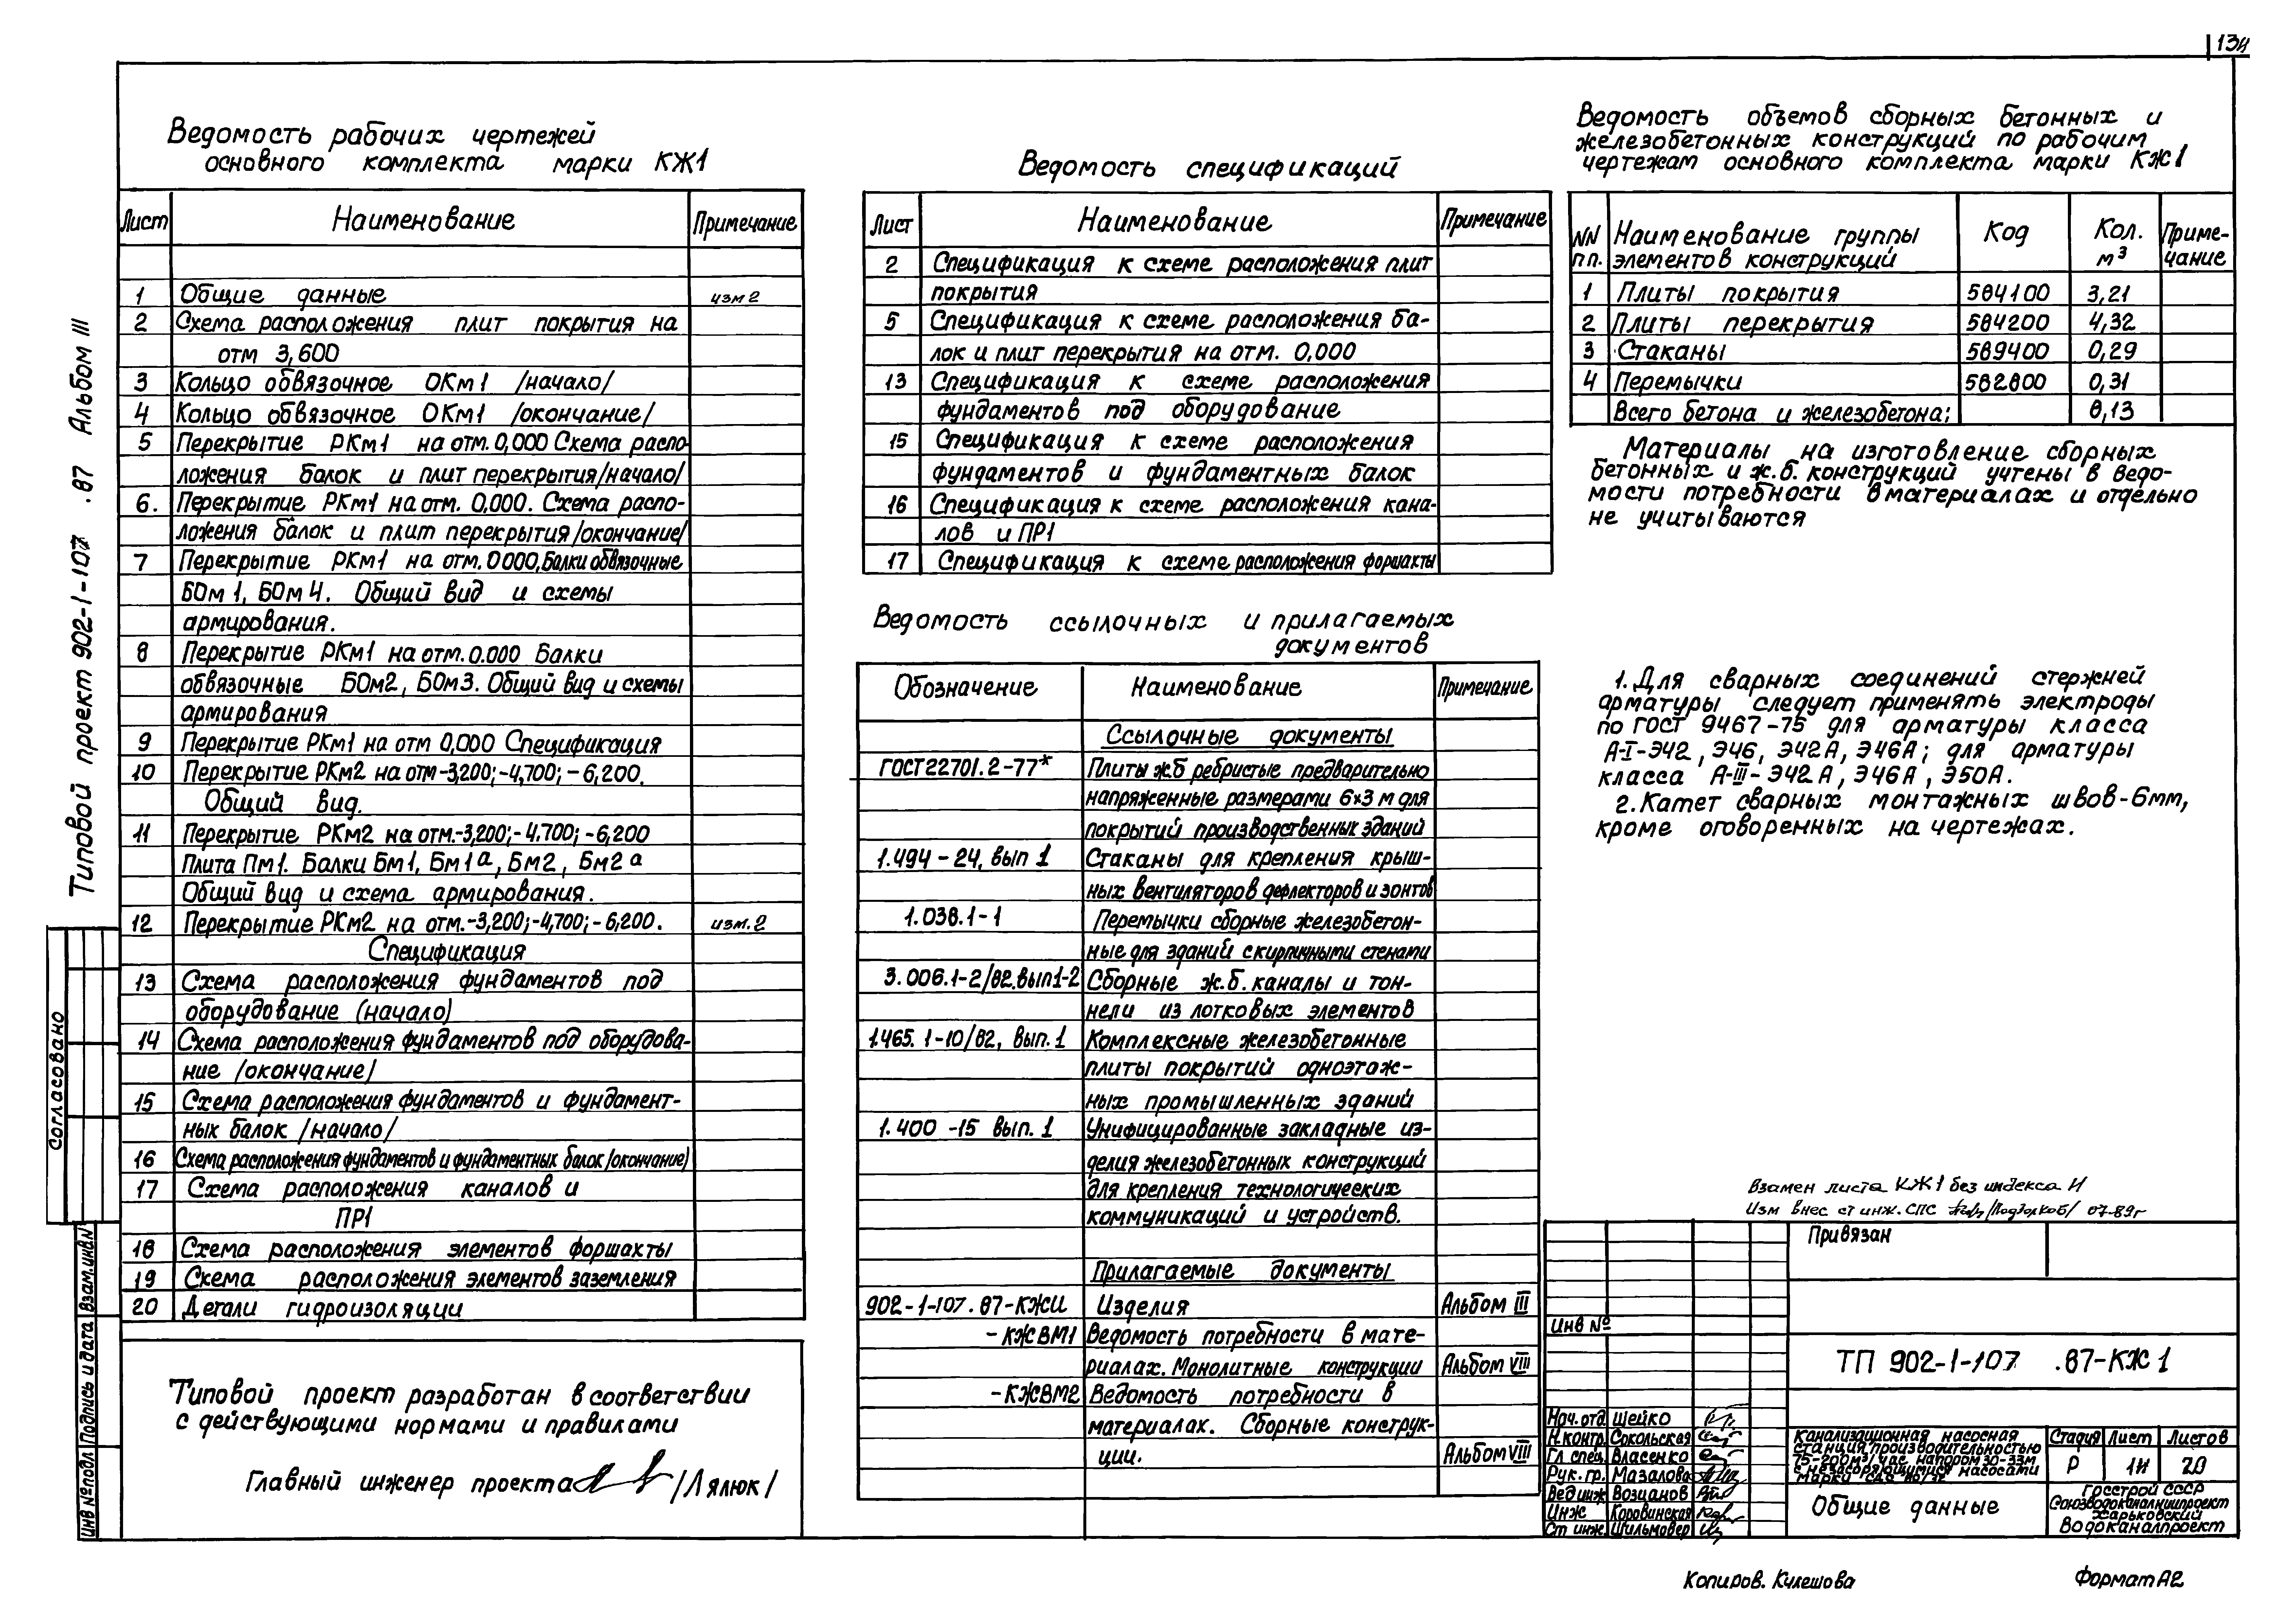 13и
Типовой проект 902-1-107 .87 Альбом III
Ведомость рабочих чертежей
основного комплекта марки КЖ1
Лист Наименование Примечание
1 Общие данные изм 2
2 Схема расположения плит покрытия на
отм 3,600
3 Кольцо обвязочное ОКм1 /начало/
4 Кольцо обвязочное ОКм1 /окончание/
5 Перекрытие РКм1 на отм. 0,000 Схема распо-
ложения балок и плит перекрытия/начало/
6. Перекрытие РКм1 на отм. 0,000. Схема распо-
ложения балок и плит перекрытия/окончание/
7 Перекрытие РКм1 на отм. 0000. Балки обвязочные
БОм 1, БОм 4. Общий вид и схемы
армирования.
8 Перекрытие РКм1 на отм. 0.000 Балки
обвязочные БОм2, БОм3. Общий вид и схемы
армирования
9 Перекрытие РКм1 на отм 0,000 Спецификация
10 Перекрытие РКм2 на отм -3,200; -4,700; -6,200.
Общий вид.
11 Перекрытие РКм2 на отм. -3,200; -4.700; -6,200
Плита Пм1. Балки Бм1, Бм1а, Бм2, Бм2а
Общий вид и схема армирования.
12 Перекрытие РКм2 на отм. -3,200; -4,700; -6,200. изм. 2
Спецификация
13 Схема расположения фундаментов под
оборудование (начало)
14 Схема расположения фундаментов под оборудова-
ние /окончание/
15 Схема расположения фундаментов и фундамент-
ных балок /начало/
16 Схема расположения фундаментов и фундаментных балок /окончание)
17 Схема расположения каналов и
ПР1
18 Схема расположения элементов форшахты
19 Схема расположения элементов заземления
20 Детали гидроизоляции
Типовой проект разработан в соответствии
с действующими нормами и правилами
Главный инженер проекта /Лялюк/
Согласовано
Инв № подл Подпись и дата Взам. инв N
Ведомость спецификаций
Лист Наименование Примечание
2 Спецификация к схеме расположения плит
покрытия
5 Спецификация к схеме расположения ба-
лок и плит перекрытия на отм. 0,000
13 Спецификация к схеме расположения
фундаментов под оборудование
15 Спецификация к схеме расположения
фундаментов и фундаментных балок
16 Спецификация к схеме расположения кана-
лов и ПР1
17 Спецификация к схеме расположения форшахты
Ведомость ссылочных и прилагаемых
документов
Обозначение Наименование Примечание
Ссылочные документы
ГОСТ 22701.2-77* Плиты ж.б ребристые предварительно
напряженные размерами 6×3 м для
покрытий производственных зданий
1.494-24, вып 1 Стаканы для крепления крыш-
ных вентиляторов дефлекторов и зонтов
1.038.1-1 Перемычки сборные железобетон-
ные для зданий с кирпичными стенами
3.006.1-2/82. вып 1-2 Сборные ж.б. каналы и тон-
нели из лотковых элементов
1.465.1-10/82, вып. 1 Комплексные железобетонные
плиты покрытий одноэтаж-
ных промышленных зданий
1.400-15 вып. 1 Унифицированные закладные из-
делия железобетонных конструкций
для крепления технологических
коммуникаций и устройств.
Прилагаемые документы
902-1-107.87-КЖИ Изделия Альбом III
-КЖВМ1 Ведомость потребности в мате-
риалах. Монолитные конструкции Альбом VIII
-КЖВМ2 Ведомость потребности в
материалах. Сборные конструк-
ции. Альбом VIII
Ведомость объемов сборных бетонных и
железобетонных конструкций по рабочим
чертежам основного комплекта марки КЖ1
NN Наименование группы Код Кол. Приме-
пп. элементов конструкций м³ чание
1 Плиты покрытия 584100 3,21
2 Плиты перекрытия 584200 4,32
3 Стаканы 589400 0,29
4 Перемычки 582800 0,31
Всего бетона и железобетона: 8,13
Материалы на изготовление сборных
бетонных и ж.б. конструкций учтены в ведо-
мости потребности в материалах и отдельно
не учитываются
1. Для сварных соединений стержней
арматуры следует применять электроды
по ГОСТ 9467-75 для арматуры класса
А-I-Э42, Э46, Э42А, Э46А; для арматуры
класса А-III-Э42А, Э46А, Э50А.
2. Катет сварных монтажных швов-6мм,
кроме оговоренных на чертежах.
Взамен листа КЖ1 без индекса И
Изм внес ст инж. СПС 07-89г
Привязан
Инв №
ТП 902-1-107 .87-КЖ1
Нач. отд. Шейко
Н. контр. Сокольская
Гл спец. Власенко
Рук. гр. Мазалова
Вед инж Возианов
Инж Коровинская
Ст инж. Шильмовер
Канализационная насосная
станция производительностью
75-200 м³/час напором 30-33м
с незасоряющимися насосами
марки
Стадия Лист Листов
Р 1и 20
Общие данные
Госстрой СССР
Союзводоканалниипроект
Харьковский
Водоканалпроект
Копиров. Кулешова
Формат А2